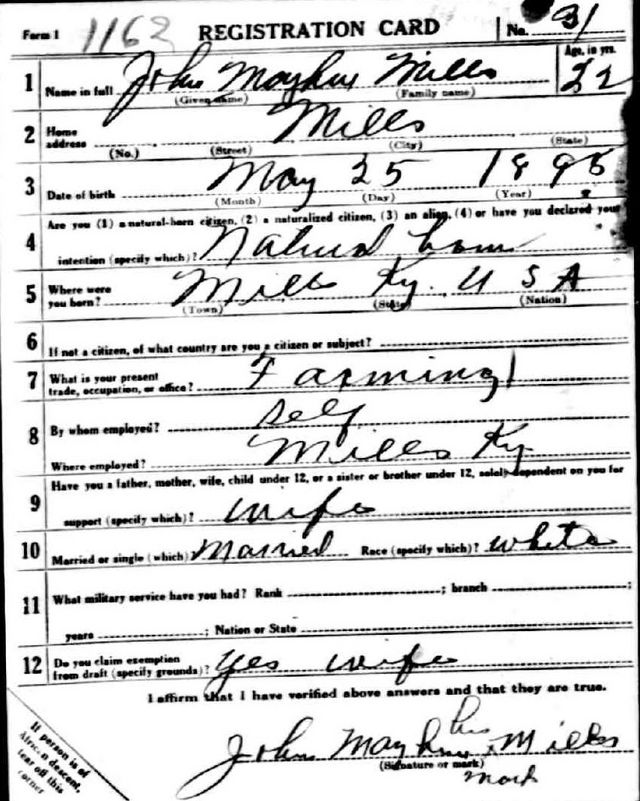 Form 1 1162 REGISTRATION CARD No. 31
1 Name in full John Mayhue Mills Age, in yrs. 22
(Given name) (Family name)
2 Home address Mills
(No.) (Street) (City) (State)
3 Date of birth May 25 1895
(Month) (Day) (Year)
4 Are you (1) a natural-born citizen, (2) a naturalized citizen, (3) an alien, (4) or have you declared your
intention (specify which)? Natural born
5 Where were you born? Mills Ky. U S A
(Town) (State) (Nation)
6 If not a citizen, of what country are you a citizen or subject?
7 What is your present trade, occupation, or office? Farming
8 By whom employed? Self
Where employed? Mills Ky
9 Have you a father, mother, wife, child under 12, or a sister or brother under 12, solely dependent on you for
support (specify which)? wife
10 Married or single (which) Married Race (specify which)? white
11 What military service have you had? Rank ; branch ;
years ; Nation or State
12 Do you claim exemption from draft (specify grounds)? Yes wife
I affirm that I have verified above answers and that they are true.
his
John Mayhue x Mills
(Signature or mark)
mark
If person is of
African descent,
tear off this
corner